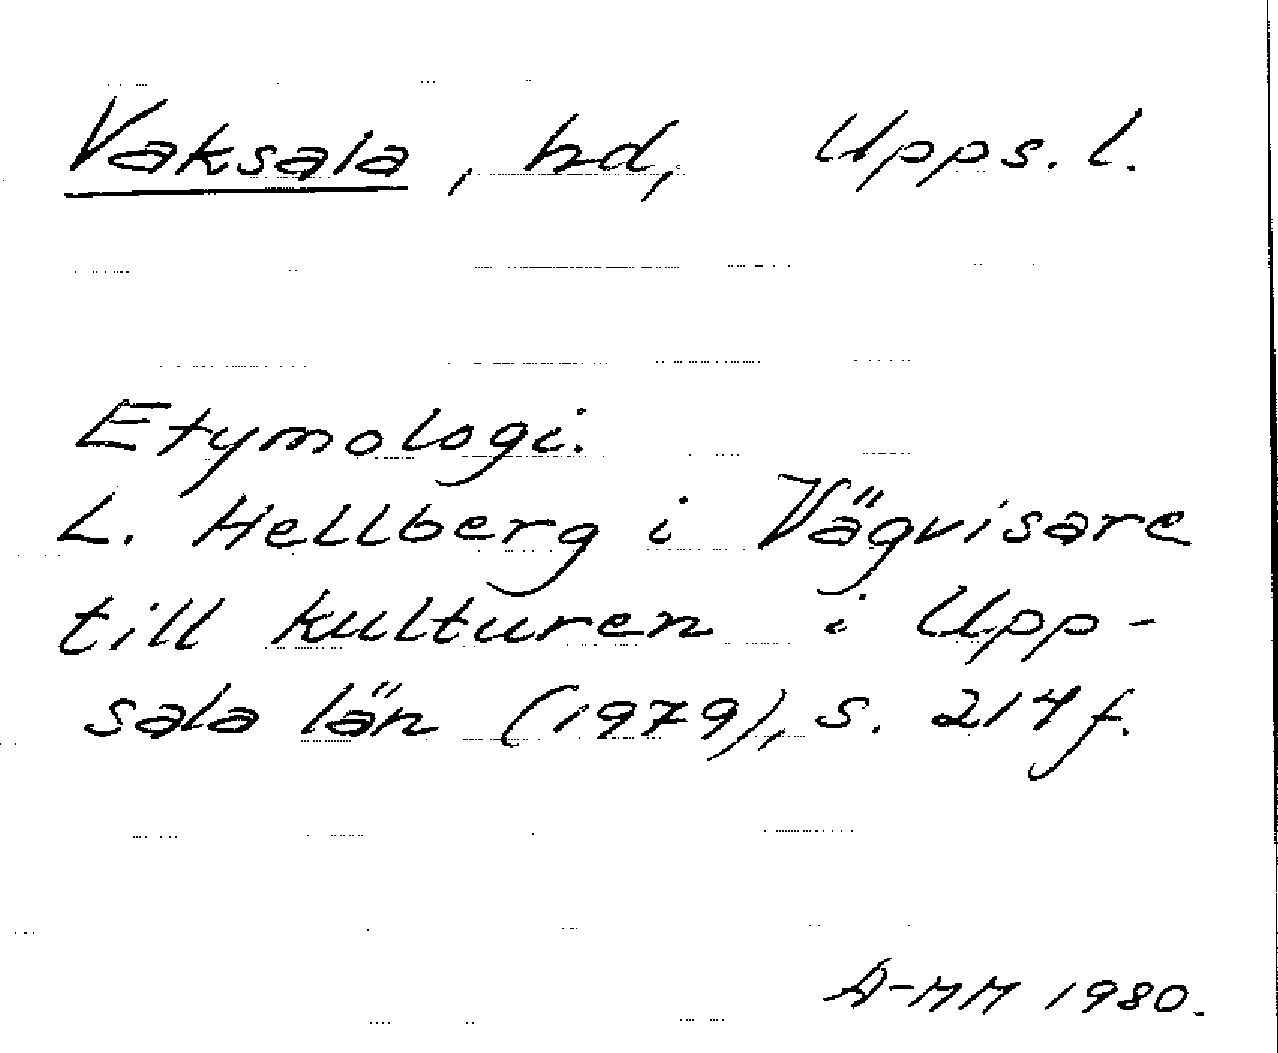 Vaksala, hd, Upps. l.
Etymologi.
L. Hellberg i Vägvisare
till kulturen i Upp-
sala län (1979), s. 214 f.
A-MM 1980.